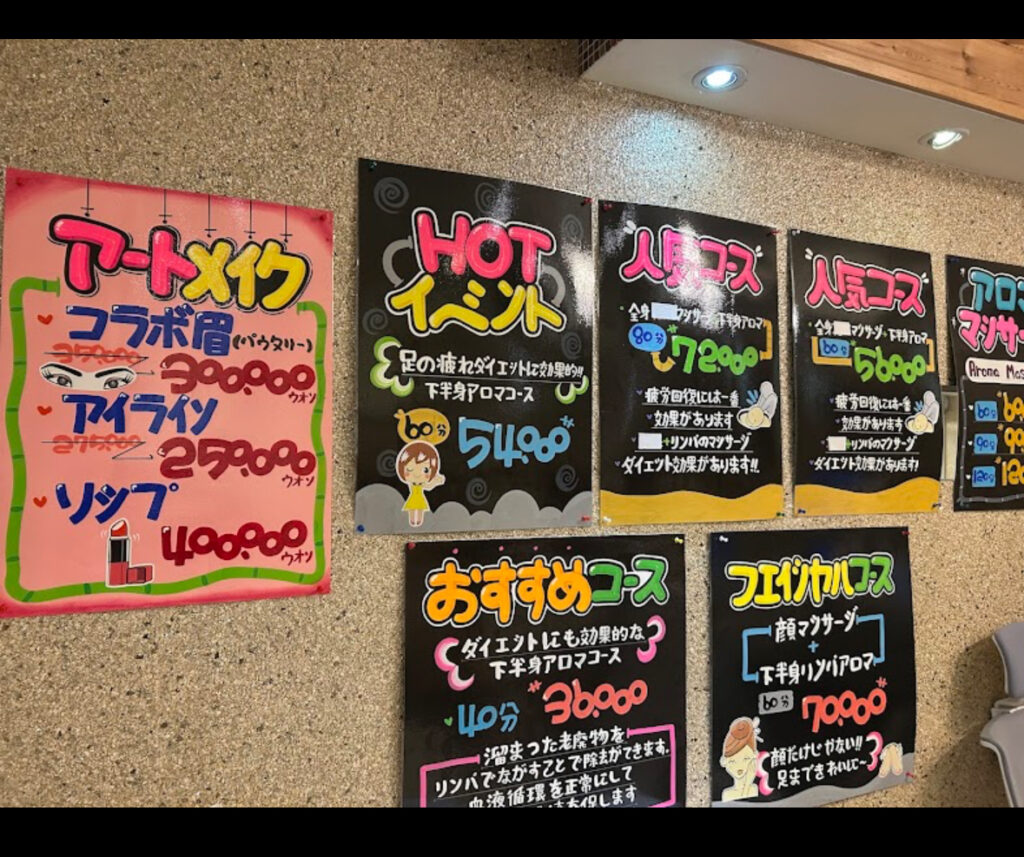 アートメイク
コラボ眉(パウダリー)
350000
300.000
ウオン
アイライン
275000
250.000
ウオン
リップ
400.000
ウオン
HOT
イベント
足の疲れダイエットに効果的!!
下半身アロマコース
60分
54.000
人気コース
全身 マッサージ+下半身アロマ
80分
72000
疲労回復には一番
効果があります
+リンパのマッサージ
ダイエット効果があります!!
人気コース
全身 マッサージ+下半身アロマ
60分
56.000
疲労回復には一番
効果があります
+リンパのマッサージ
ダイエット効果があります!
アロマ
マッサー
Aroma Mas
60分
90分
120分
おすすめコース
ダイエットにも効果的な
下半身アロマコース
40分
36.000
溜まった老廃物を
リンパでながすことで除去ができます.
血液循環を正常にして
フェイシャルコース
顔マッサージ
+
下半身リンパアロマ
60分
70.000
顔だけじゃない!!
足まできれいに~